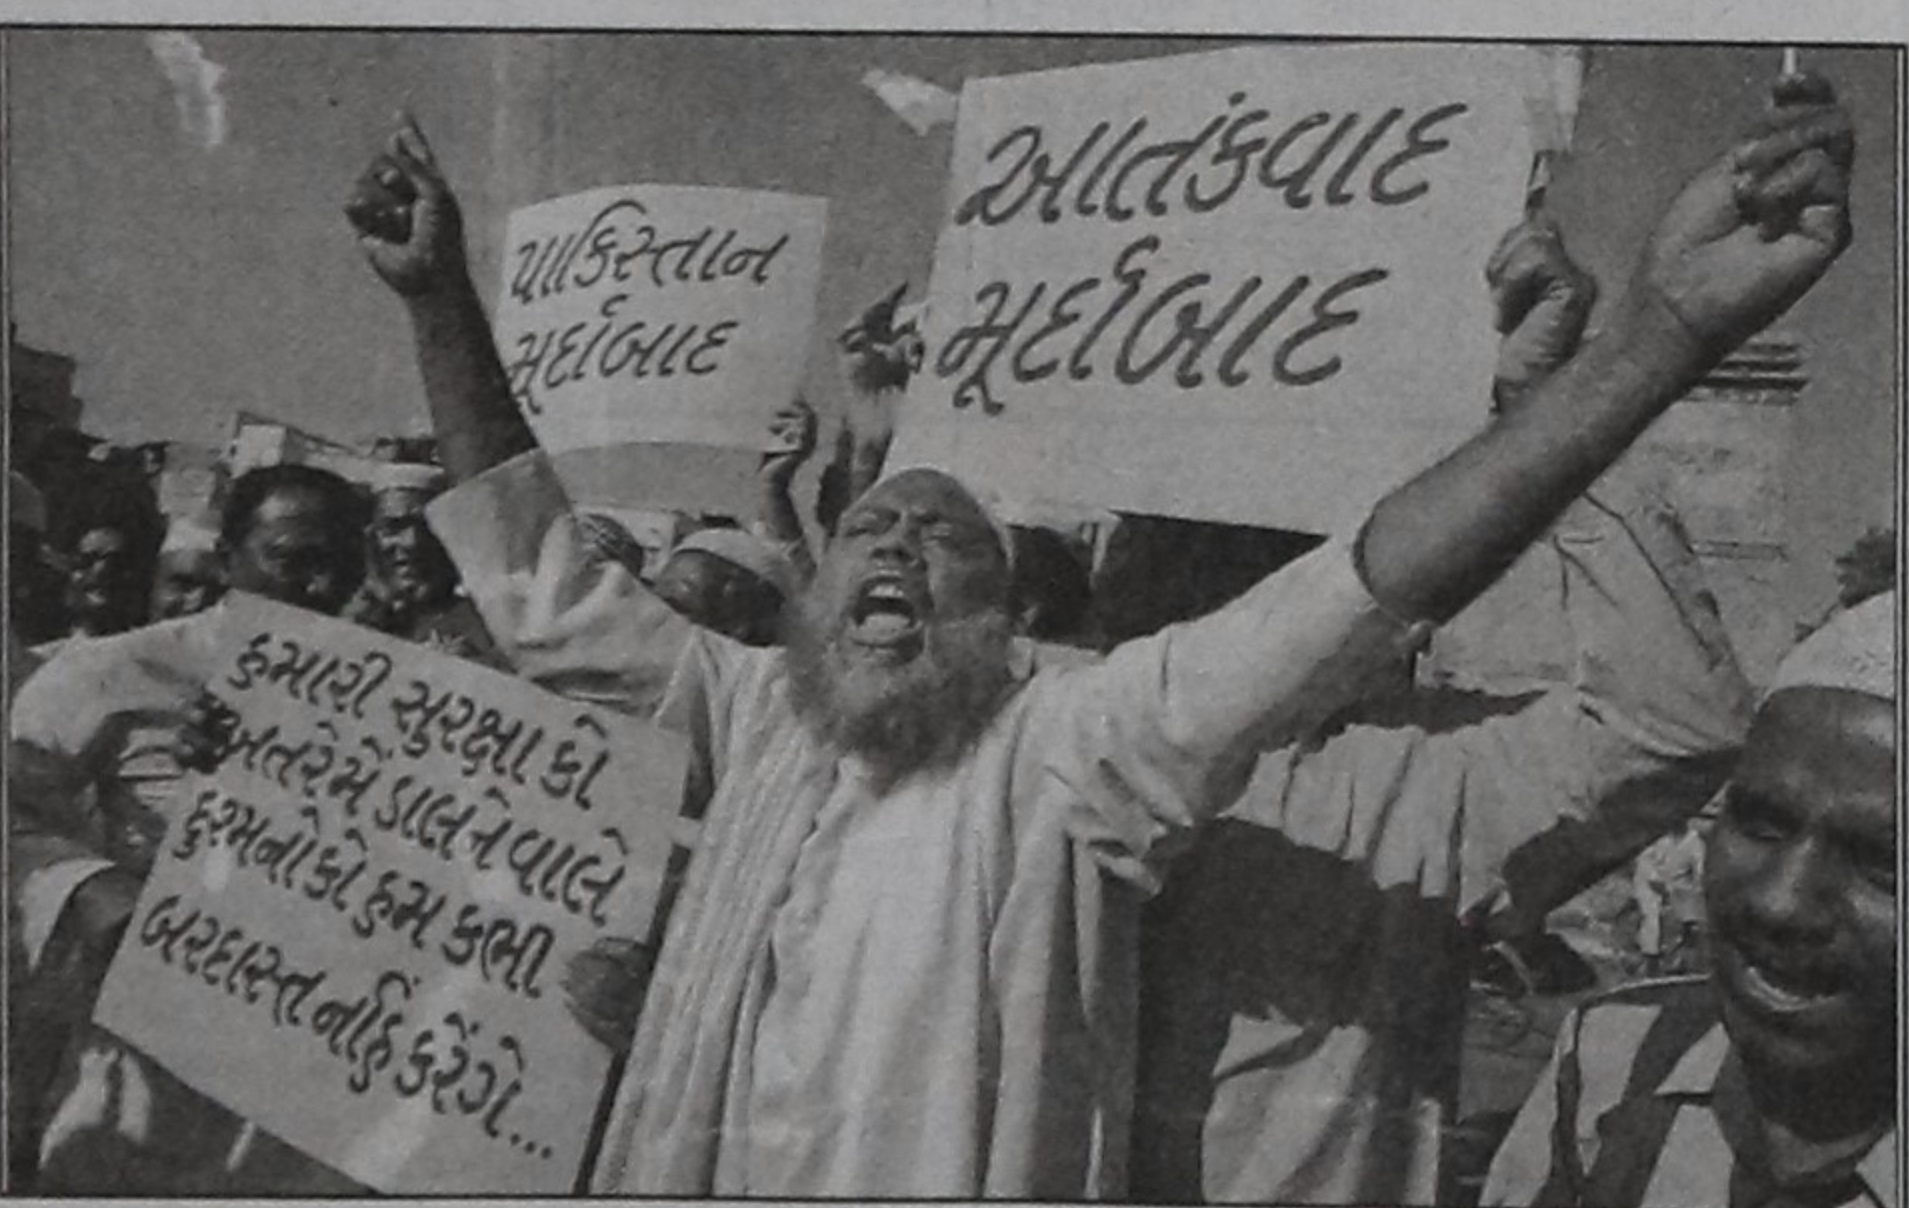 પાકિસ્તાન
મૂર્દાબાદ
આતંકવાદ
મૂર્દાબાદ
હમારી સુરક્ષા કો
ખતરેમેં ડાલને વાલે
દુશ્મનોકો હમ કભી
બરદાસ્ત નહિં કરેંગે...